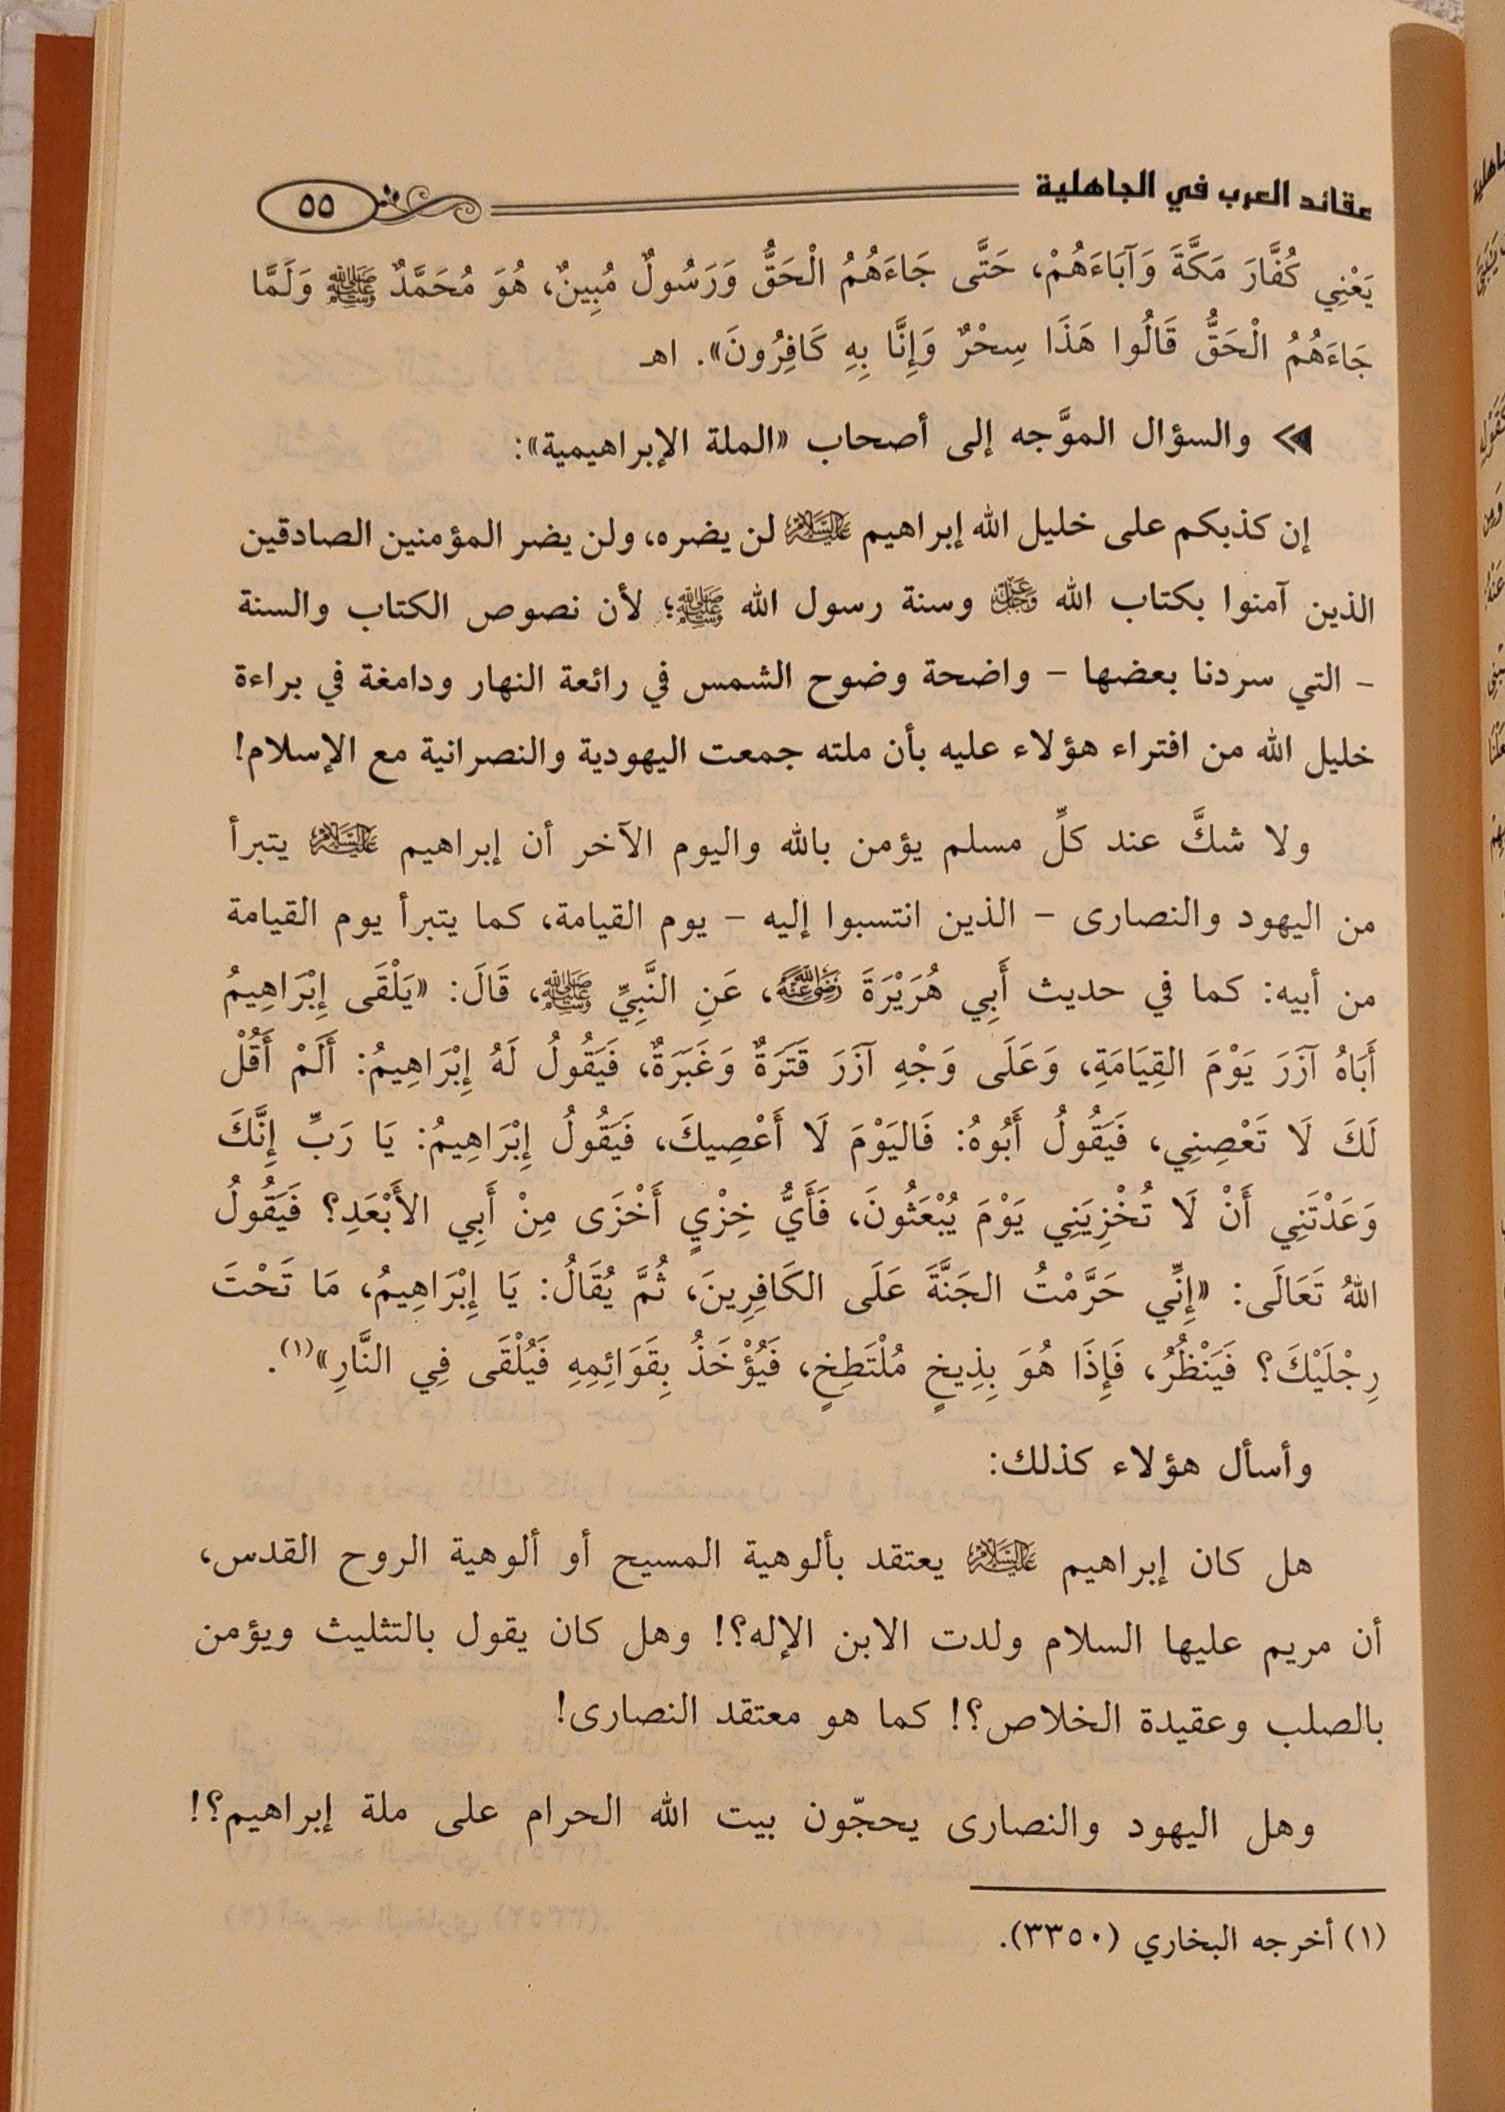 عقائد العرب في الجاهلية ٥٥
يَعْنِي كُفَّارَ مَكَّةَ وَآبَاءَهُمْ، حَتَّى جَاءَهُمُ الْحَقُّ وَرَسُولٌ مُبِينٌ، هُوَ مُحَمَّدٌ ﷺ وَلَمَّا
جَاءَهُمُ الْحَقُّ قَالُوا هَذَا سِحْرٌ وَإِنَّا بِهِ كَافِرُونَ». اهـ
والسؤال الموَّجه إلى أصحاب «الملة الإبراهيمية»:
إن كذبكم على خليل الله إبراهيم عَلَيْهِ السَّلَامُ لن يضره، ولن يضر المؤمنين الصادقين
الذين آمنوا بكتاب الله عَزَّ وَجَلَّ وسنة رسول الله ﷺ؛ لأن نصوص الكتاب والسنة
– التي سردنا بعضها – واضحة وضوح الشمس في رائعة النهار ودامغة في براءة
خليل الله من افتراء هؤلاء عليه بأن ملته جمعت اليهودية والنصرانية مع الإسلام!
ولا شكَّ عند كلِّ مسلم يؤمن بالله واليوم الآخر أن إبراهيم عَلَيْهِ السَّلَامُ يتبرأ
من اليهود والنصارى – الذين انتسبوا إليه – يوم القيامة، كما يتبرأ يوم القيامة
من أبيه: كما في حديث أَبِي هُرَيْرَةَ رَضِيَ اللَّهُ عَنْهُ، عَنِ النَّبِيِّ ﷺ، قَالَ: «يَلْقَى إِبْرَاهِيمُ
أَبَاهُ آزَرَ يَوْمَ القِيَامَةِ، وَعَلَى وَجْهِ آزَرَ قَتَرَةٌ وَغَبَرَةٌ، فَيَقُولُ لَهُ إِبْرَاهِيمُ: أَلَمْ أَقُلْ
لَكَ لَا تَعْصِنِي، فَيَقُولُ أَبُوهُ: فَاليَوْمَ لَا أَعْصِيكَ، فَيَقُولُ إِبْرَاهِيمُ: يَا رَبِّ إِنَّكَ
وَعَدْتَنِي أَنْ لَا تُخْزِيَنِي يَوْمَ يُبْعَثُونَ، فَأَيُّ خِزْيٍ أَخْزَى مِنْ أَبِي الأَبْعَدِ؟ فَيَقُولُ
اللهُ تَعَالَى: «إِنِّي حَرَّمْتُ الجَنَّةَ عَلَى الكَافِرِينَ، ثُمَّ يُقَالُ: يَا إِبْرَاهِيمُ، مَا تَحْتَ
رِجْلَيْكَ؟ فَيَنْظُرُ، فَإِذَا هُوَ بِذِيخٍ مُلْتَطِخٍ، فَيُؤْخَذُ بِقَوَائِمِهِ فَيُلْقَى فِي النَّارِ»(١).
وأسأل هؤلاء كذلك:
هل كان إبراهيم عَلَيْهِ السَّلَامُ يعتقد بألوهية المسيح أو ألوهية الروح القدس،
أن مريم عليها السلام ولدت الابن الإله؟! وهل كان يقول بالتثليث ويؤمن
بالصلب وعقيدة الخلاص؟! كما هو معتقد النصارى!
وهل اليهود والنصارى يحجّون بيت الله الحرام على ملة إبراهيم؟!
(١) أخرجه البخاري (٣٣٥٠).